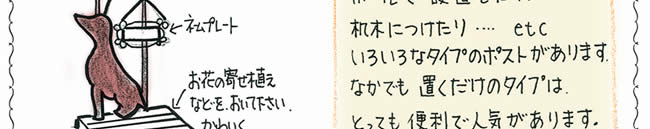 ネームプレート
お花の寄せ植え
などを、おいて下さい.
かわいく
机木につけたり ‥‥ etc
いろいろなタイプのポストがあります.
なかでも 置くだけのタイプは、
とっても 便利で人気があります.